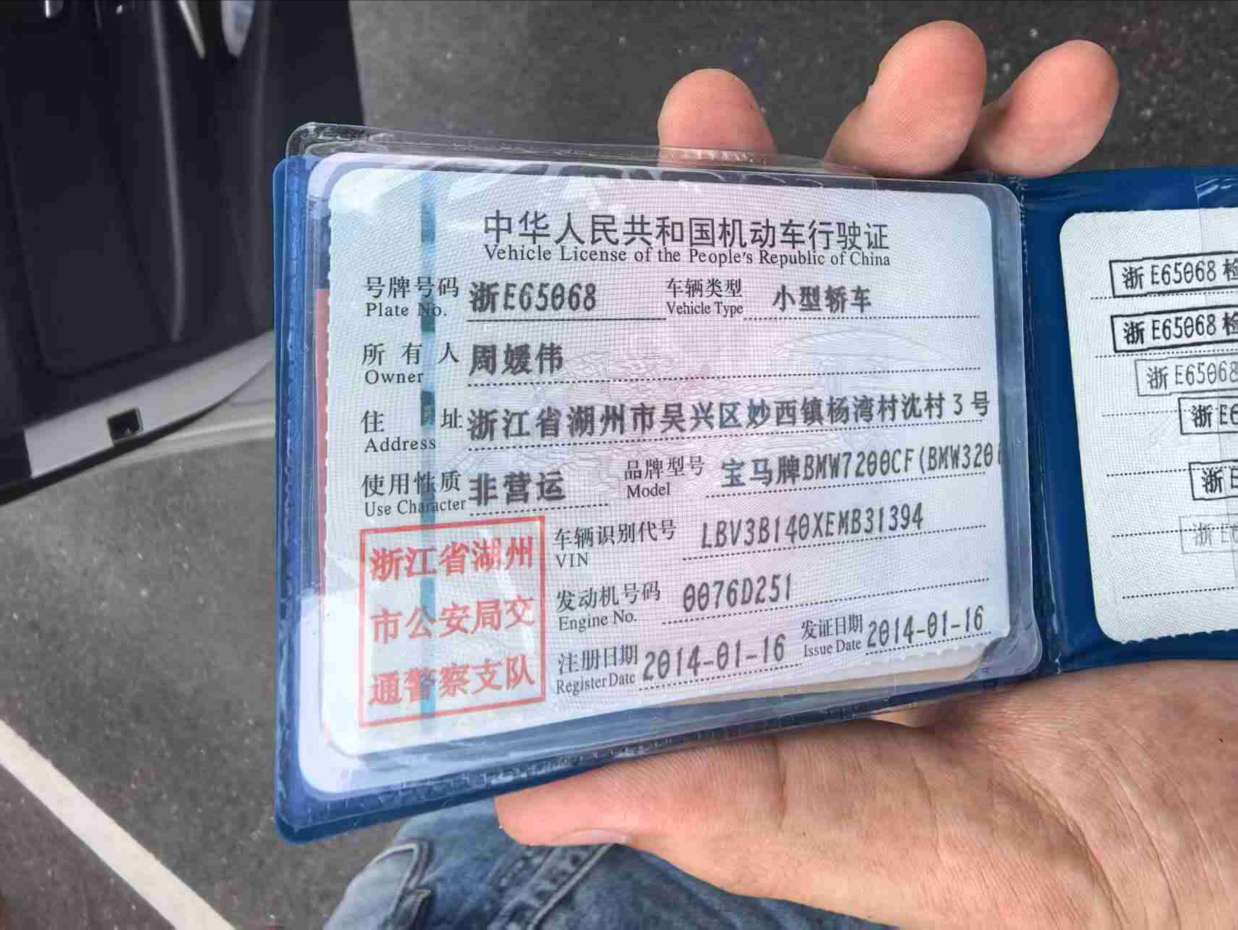 中华人民共和国机动车行驶证
Vehicle License of the People's Republic of China
号牌号码 浙E65068 车辆类型 小型轿车
Plate No. Vehicle Type
所有人 周媛伟
Owner
住址 浙江省湖州市吴兴区妙西镇杨湾村沈村3号
Address
使用性质 非营运 品牌型号 宝马牌BMW7200CF(BMW320
Use Character Model
浙江省湖州
市公安局交
通警察支队
车辆识别代号 LBV3B140XEMB31394
VIN
发动机号码 0076D251
Engine No.
注册日期 2014-01-16 发证日期 2014-01-16
Register Date Issue Date
浙E65068 检
浙E65068 检
浙E65068
浙E6
浙E
浙E